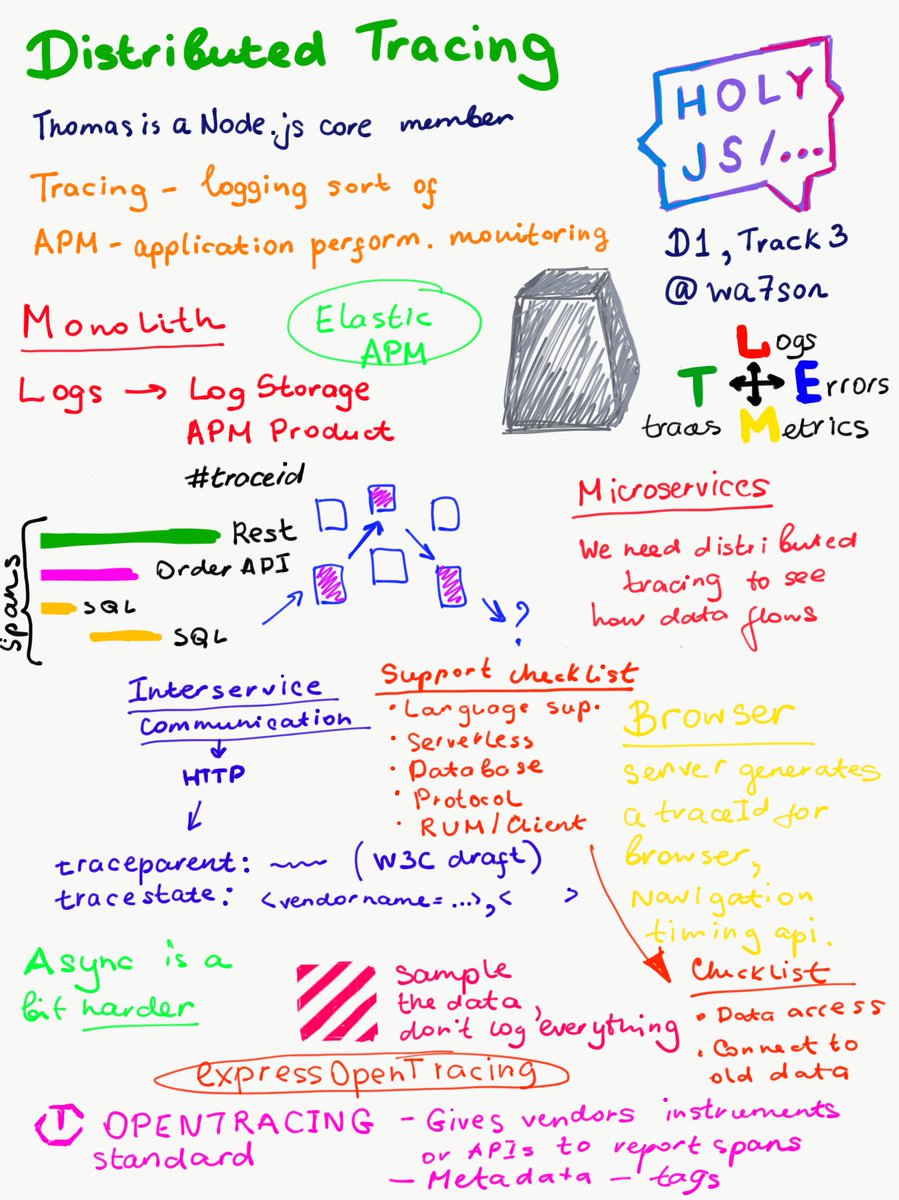 Distributed Tracing
Thomas is a Node.js core member
Tracing - logging sort of
APM - application perform. monitoring
HOLY
JS/...
D1, Track 3
@wa7son
Monolith
Elastic
APM
Logs → Log Storage
APM Product
#traceid
Logs
T
Errors
traces
Metrics
Spans
Rest
Order API
SQL
SQL
?
Microservices
We need distributed
tracing to see
how data flows
Interservice
communication
HTTP
traceparent: ~~ (W3C draft)
tracestate: <vendorname=...>,< >
Support checklist
• Language sup.
• Serverless
• Database
• Protocol
• RUM/Client
Browser
server generates
a traceId for
browser,
Navigation
timing api.
Checklist
• Data access
• Connect to
old data
Async is a
bit harder
Sample
the data,
don't log everything
expressOpenTracing
T OPENTRACING
standard
- Gives vendors instruments
or APIs to report spans
- Metadata - tags